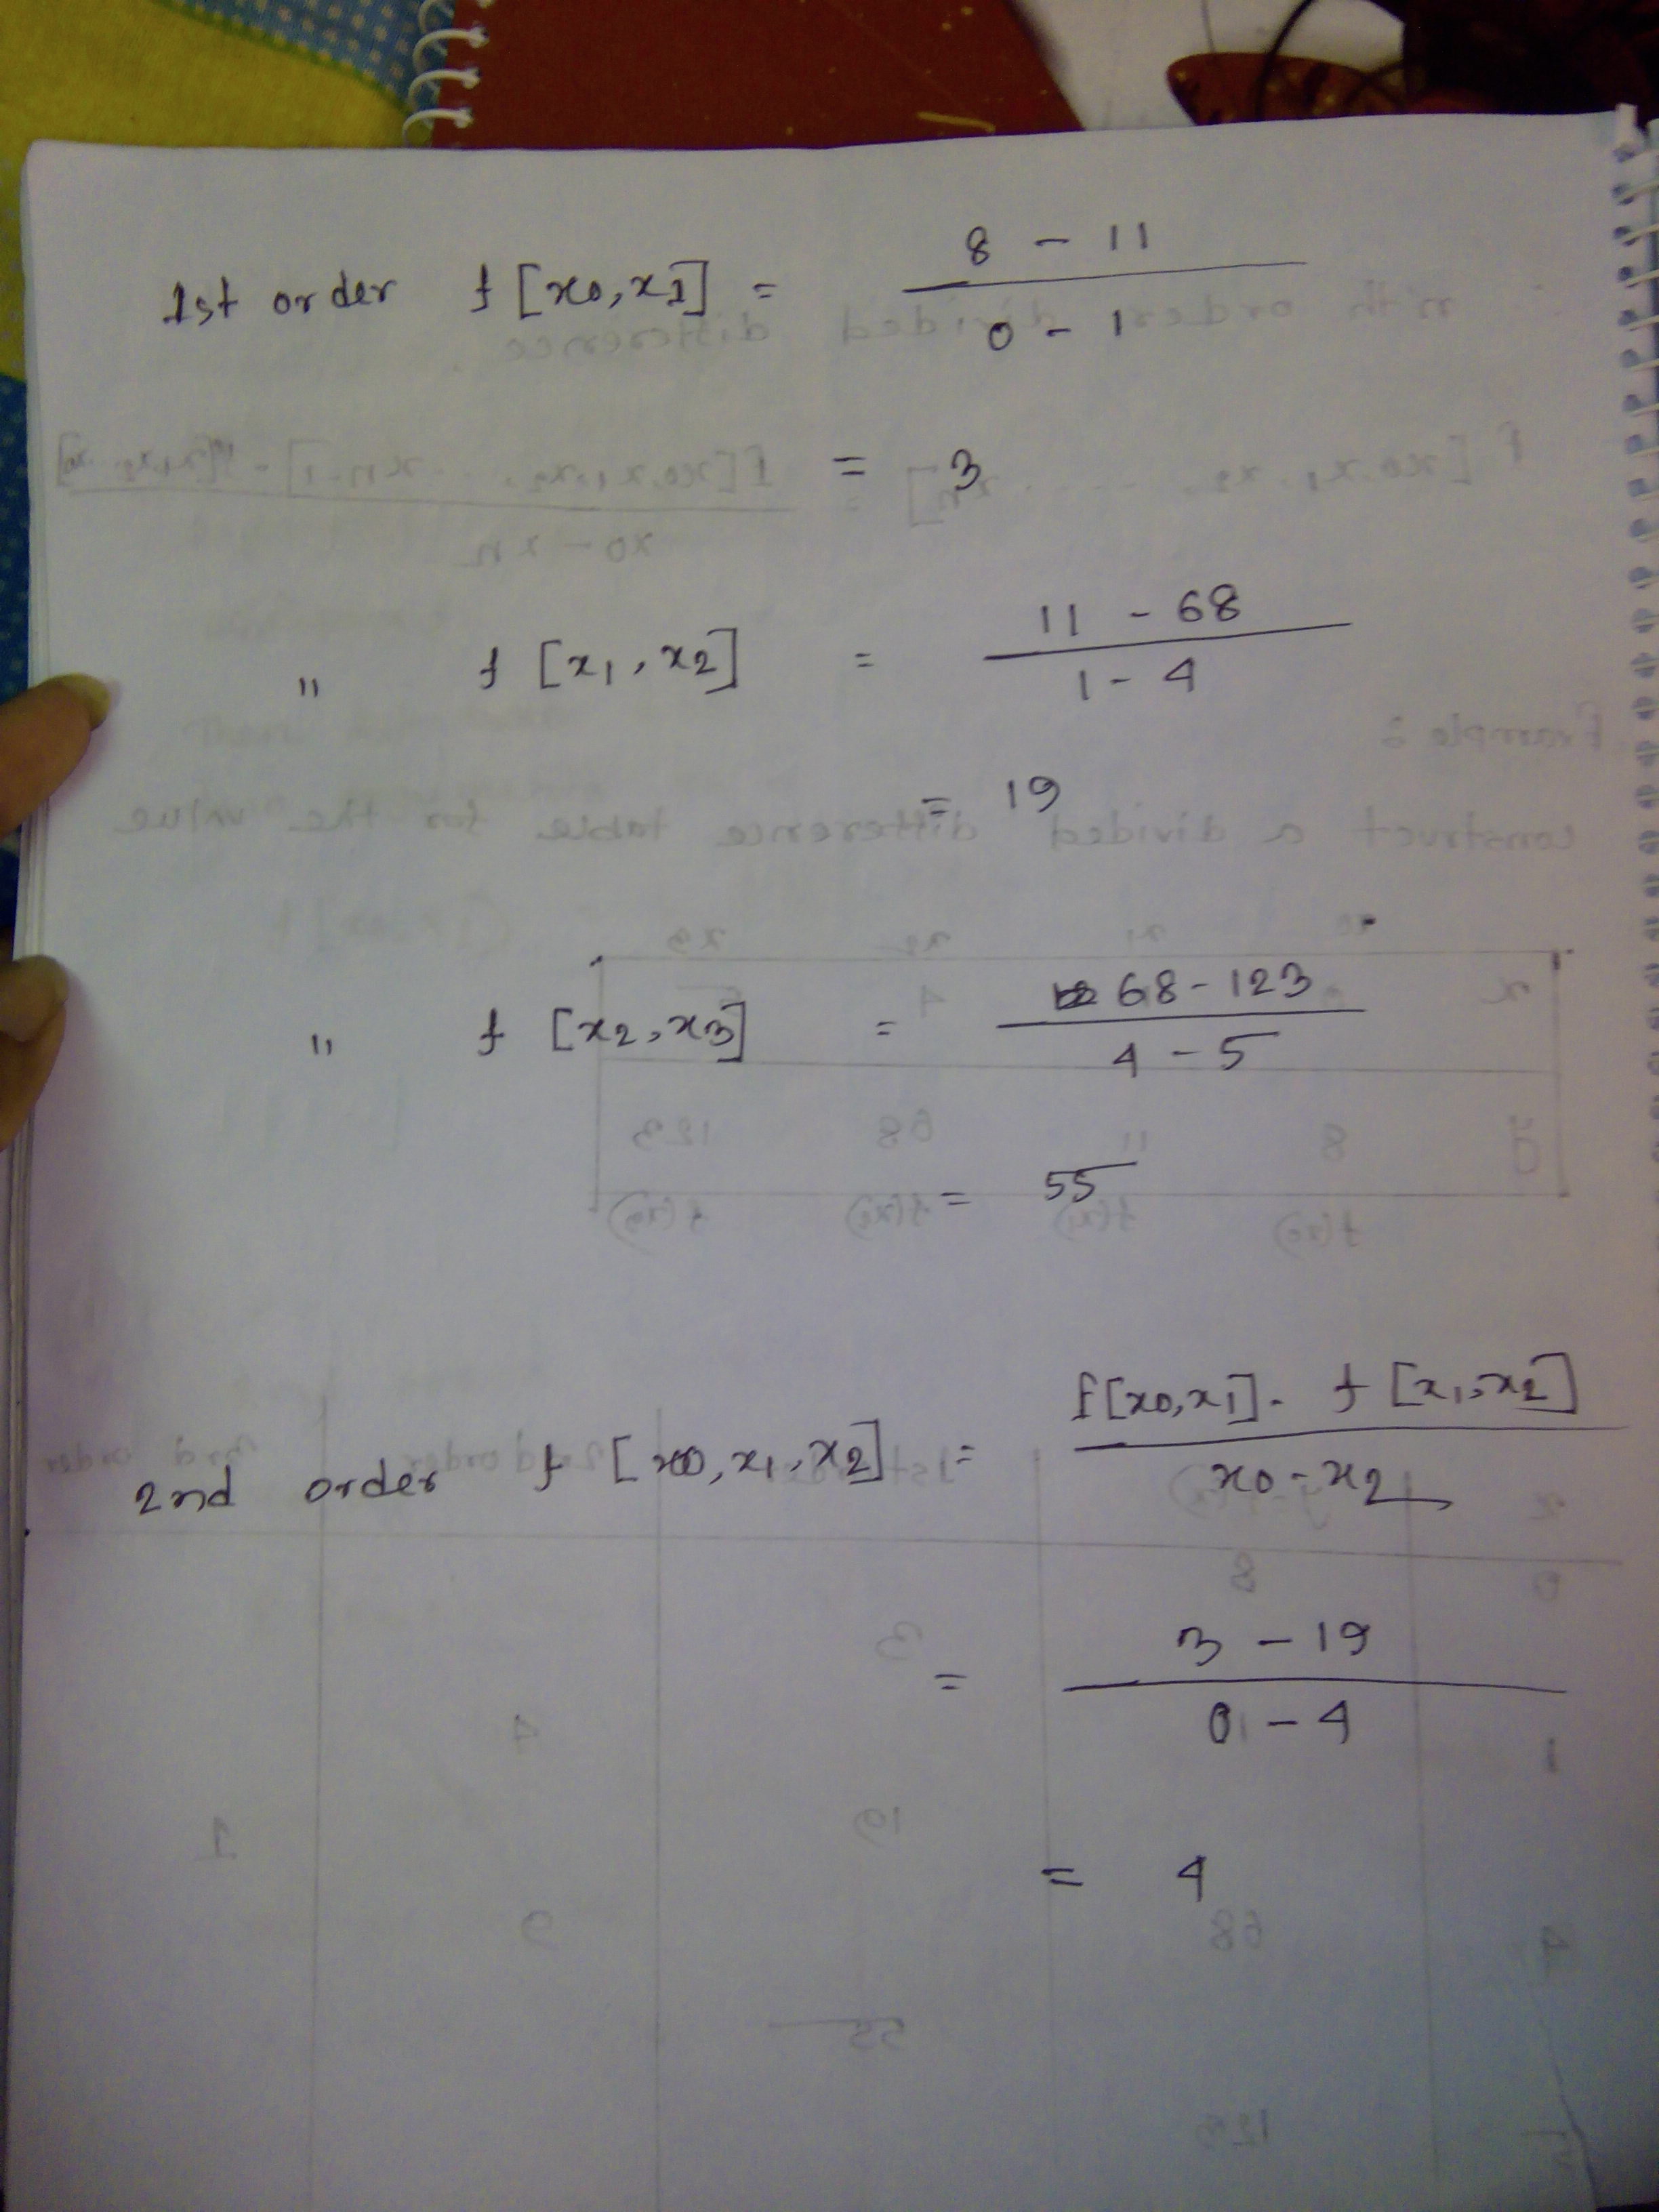 1st order f [x0, x1] = 8 - 11 / 0 - 1
= 3
" f [x1, x2] = 11 - 68 / 1 - 4
= 19
" f [x2, x3] = 68 - 123 / 4 - 5
= 55
2nd order f [x0, x1, x2] = f[x0, x1] - f [x1, x2] / x0 - x2
= 3 - 19 / 0 - 4
= 4